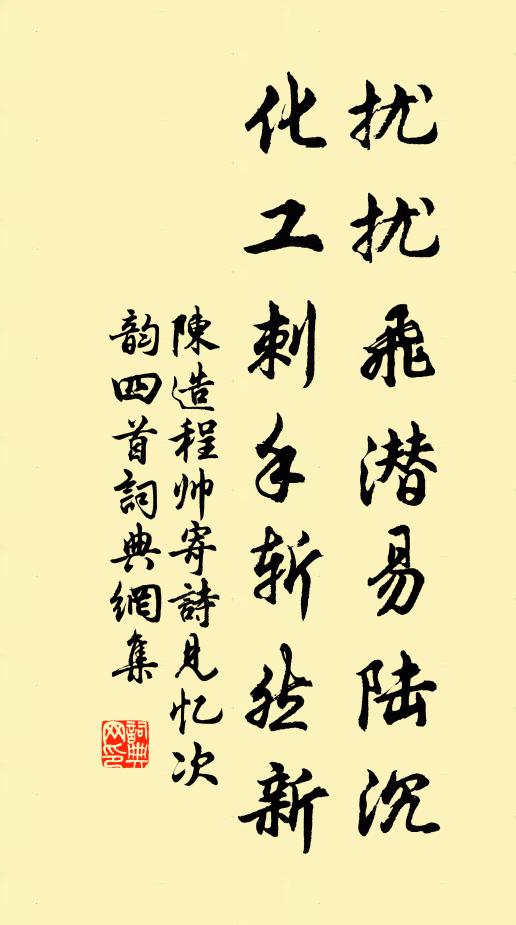 扰扰飛潛易陆沉
化工刺手斩然新
陳造程帅寄詩見忆次
韵四首詞典網集
詞典
网印